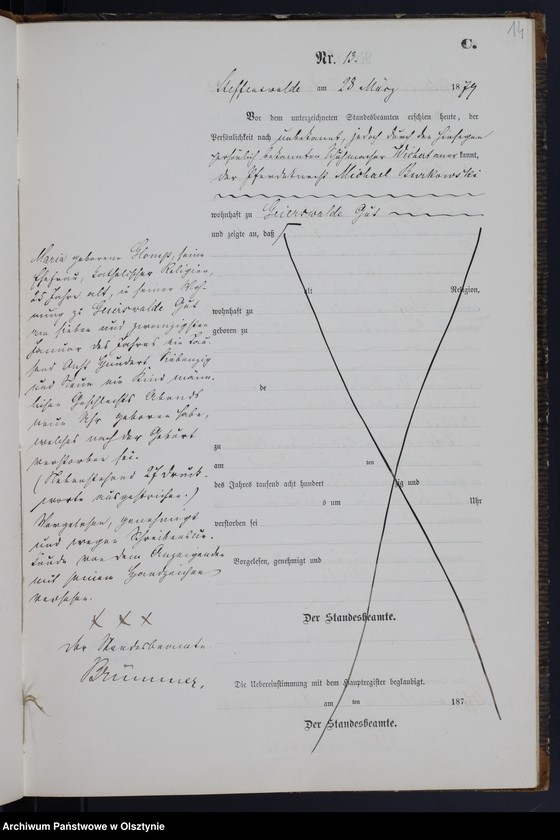 14
C.
Nr. 13.
Steffenswalde am 28 März 1879
Vor dem unterzeichneten Standesbeamten erschien heute, der
Persönlichkeit nach unbekannt, jedoch durch den hierselbst
persönlich bekannten Wichert anerkannt,
der Pferdeknecht Michael Burkowski
wohnhaft zu Geierswalde Gut
und zeigte an, daß
Maria geborene Klomps, seine
Ehefrau, katholischer Religion,
25 Jahre alt, in seiner Woh-
nung zu Geierswalde Gut
am sieben und zwanzigsten
Januar des Jahres ein tau
send Acht hundert siebenzig
und Neun ein Kind männ-
lichen Geschlechts Abends
neun Uhr geboren habe,
welches nach der Geburt
verstorben sei.
(Nebenstehend 27 Druck-
worte ausgestrichen.)
Vorgelesen, genehmigt
und wegen Schreibensun-
kunde von dem Anzeigenden
mit seinem Handzeichen
versehen.
x x x
Der Standesbeamte.
Brümmer,
alt Religion,
wohnhaft zu
geboren zu
de
zu
am ten
des Jahres tausend acht hundert zig und
s um Uhr
verstorben sei
Vorgelesen, genehmigt und
Der Standesbeamte.
Die Uebereinstimmung mit dem Hauptregister beglaubigt.
am ten 187
Der Standesbeamte.
Archiwum Państwowe w Olsztynie